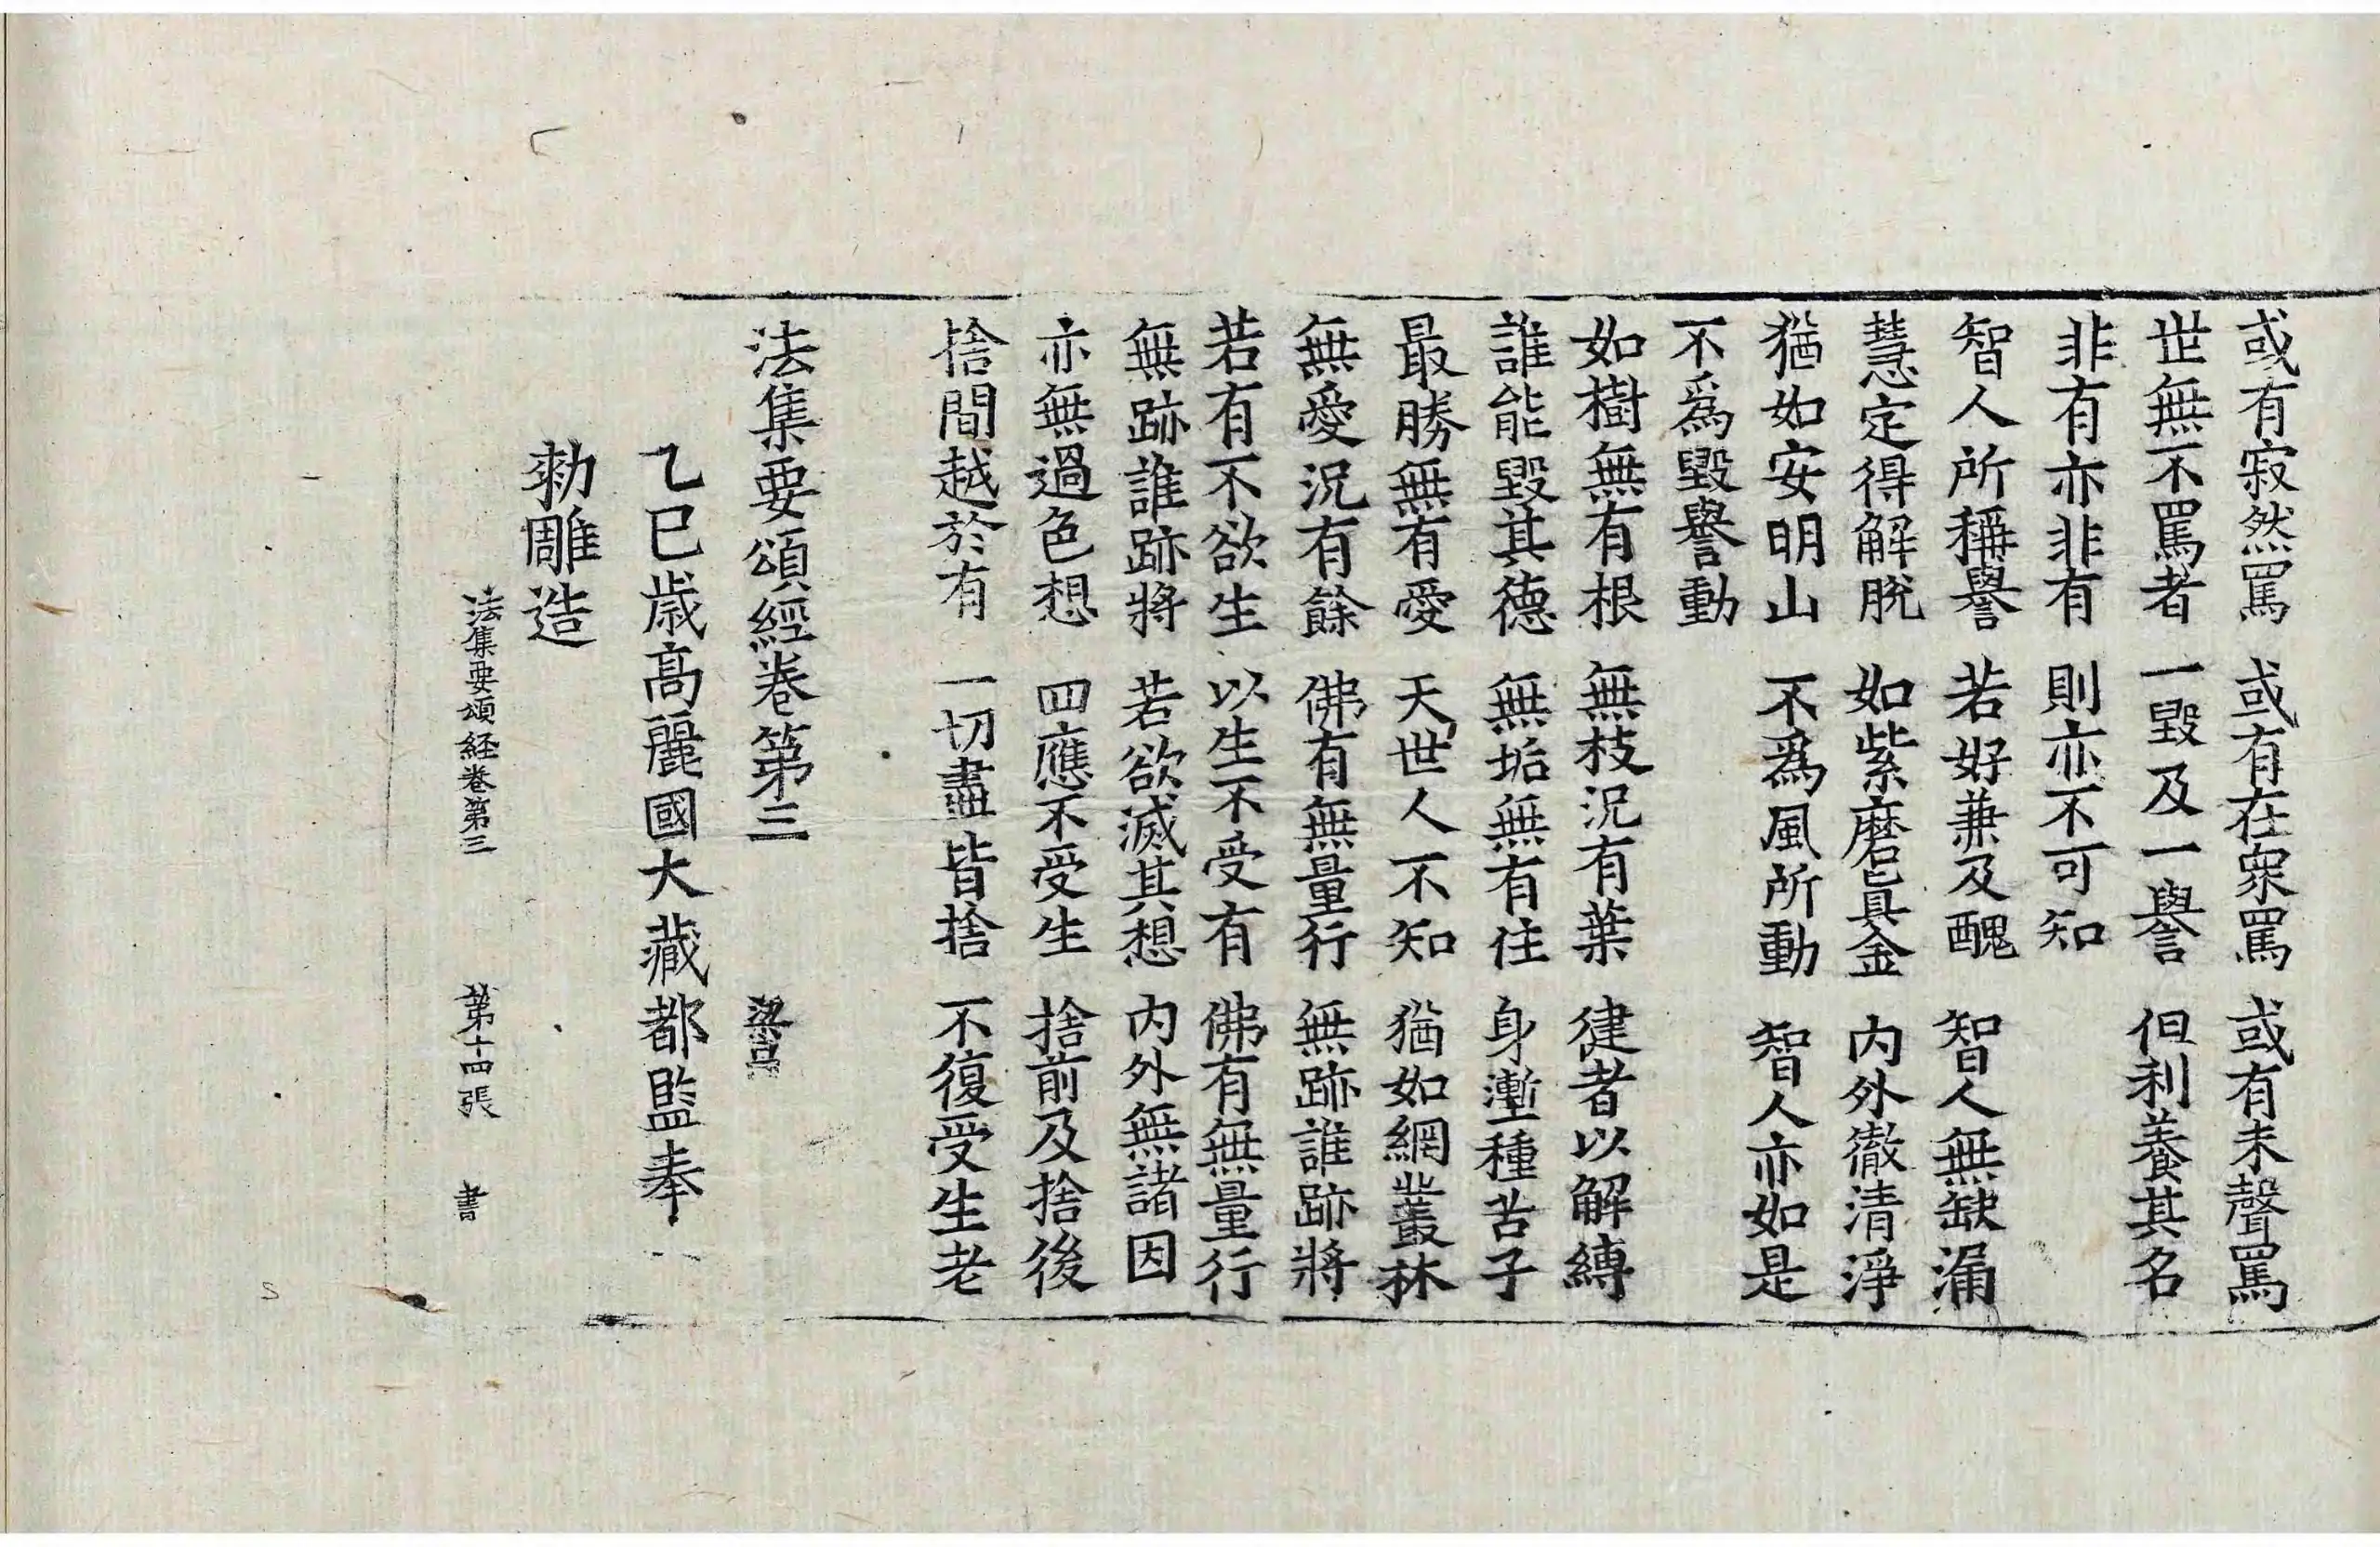 或有寂然罵　或有在衆罵　或有未聲罵
世無不罵者　一毀及一譽　但利養其名
非有亦非有　則亦不可知
智人所稱譽　若好兼及醜　智人無缺漏
慧定得解脫　如紫磨真金　內外徹清淨
猶如安明山　不爲風所動　智人亦如是
不爲毀譽動
如樹無有根　無枝況有葉　健者以解縛
誰能毀其德　無垢無有住　身壍種苦子
最勝無有愛　天世人不知　猶如網叢林
無愛況有餘　佛有無量行　無跡誰跡將
若有不欲生　以生不受有　佛有無量行
無跡誰跡將　若欲滅其想　內外無諸因
亦無過色想　四應不受生　捨前及捨後
捨間越於有　一切盡皆捨　不復受生老
法集要頌經卷第三
乙巳歲高麗國大藏都監奉
勑雕造
法集要頌経卷第三　第十四張　書